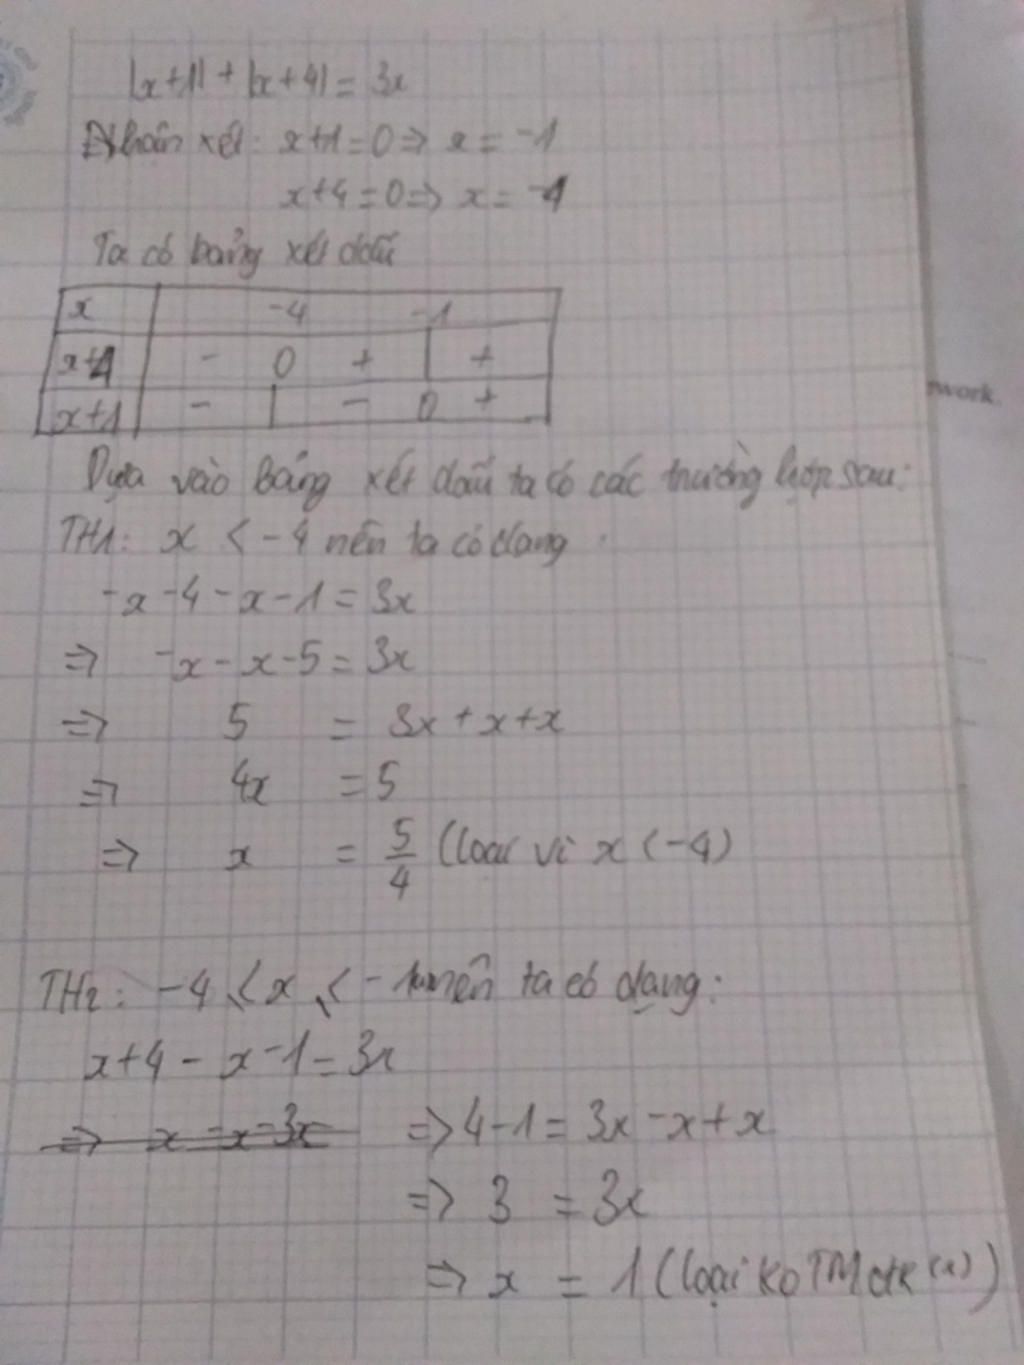 |x+1| + |x+4| = 3x
Nhận xét: x+1=0 => x = -1
x+4=0=> x = -4
Ta có bảng xét dấu
x -4 -1
x+4 - 0 + | +
x+1 - | - 0 +
Dựa vào bảng xét dấu ta có các trường hợp sau:
TH1: x < -4 nên ta có dạng
-x-4-x-1=3x
=> -x-x-5=3x
=> 5 = 3x+x+x
=> 4x = 5
=> x = 5/4 (loại vì x<-4)
TH2: -4 ≤ x ≤ -1 nên ta có dạng:
x+4-x-1=3x
=> x-x-3x => 4-1=3x-x+x
=> 3 = 3x
=> x = 1 (loại ko TM đk (1))
work